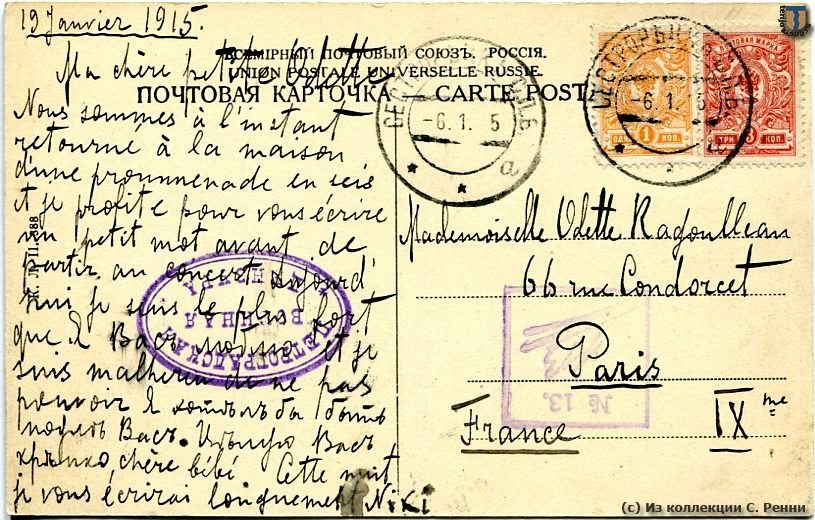 19 Janvier 1915.
Ma chère petite Odette
ВСЕМІРНЫЙ ПОЧТОВЫЙ СОЮЗЪ. РОССІЯ.
UNION POSTALE UNIVERSELLE RUSSIE.
ПОЧТОВАЯ КАРТОЧКА — CARTE POSTALE
Nous sommes à l'instant
retourné à la maison
d'une prommenade en
et je profite pour vous écrire
un petit mot avant de
partir au concert aujourd'
hui je suis le plus fort
que Я Васъ люблю et je
suis malhereu de ne pas
pouvoir Я хотѣлъ бы быть
Васъ. Цѣлую Васъ
крѣпко, chère bébé Cette nuit
je vous écrirai longuement Niki
-6.1.5
а
-6.1.5
а
ПОЧТОВАЯ МАРКА
1 КОП.
ТРИ 3 КОП.
Mademoiselle Odette Ragoulleau
66 rue Condorcet
Paris
IX me
France
ПЕТРОГРАДСКАЯ
ВОЕННАЯ
ЦЕНЗУРА
№ 13.
(c) Из коллекции С. Ренни